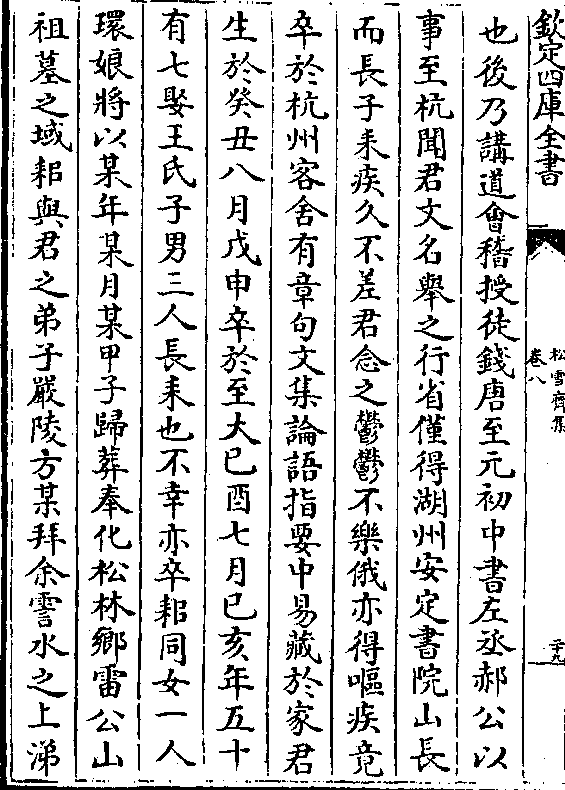 欽定四庫全書
松雪齋集
卷八
二十九
也後乃講道會稽授徒錢唐至元初中書左丞郝公以
事至杭聞君文名舉之行省僅得湖州安定書院山長
而長子耒疾久不差君念之鬱鬱不樂俄亦得嘔疾竟
卒於杭州客舍有章句文集論語指要中易藏於家君
生於癸丑八月戊申卒於至大己酉七月己亥年五十
有七娶王氏子男三人長耒也不幸亦卒耜同女一人
環娘將以某年某月某甲子歸葬奉化松林鄉雷公山
祖墓之域耜與君之弟子嚴陵方某拜余霅水之上涕